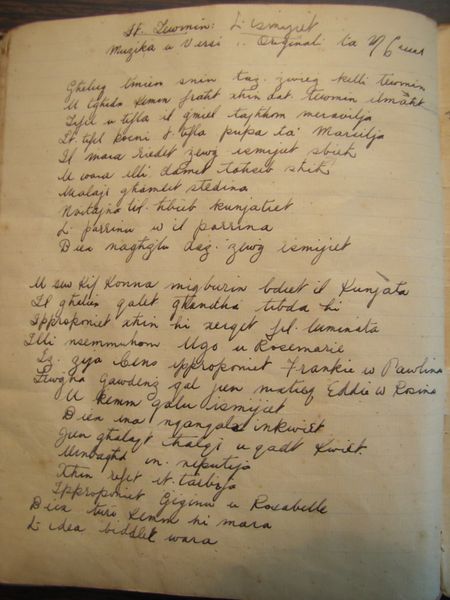 It. Tewmin: L-ismijiet
Muzika u Versi .. Originali ta
Ghelug tmien snin taz. zwieg kelli tewmin
U tghidx kemm fraht xhin dat. tewmin ilmaht
Tifel u tifla il gmiel taghhom meravilja
It. tifel pacni t. tifla pupa ta' Marsilja
Il mara riedet zewg ismijiet sbieh
U wara illi damet tahseb shih
Malajr ghamlet stedina
Kvitajna lil. hbieb kunjatiet
L. parrinu w il parrina
Biex naghzlu daz. zewg ismijiet
U suw kif konna migburin bdiet il kunjata
Il ghelieq qalet ghandha tibda hi
Ipproponiet xhin hi xerqet fil. luminata
Illi nsemmuhom Ugo u Rosemarie
Iz. zija Cens ipproponiet Frankie w Pawlina
Ziewgha Gawdenz qal jien Eddie w Rosina
U kemm qalu ismijiet
Biex ma nqangalx inkwiet
Jien ghalaqt halqi u qadt kwiet
Minnhom in. neputija
Xhin refset it. tarbija
Ipproponiet Giginu u Rosabelle
Biex turi kemm hi mara
L-idea biddlet wara